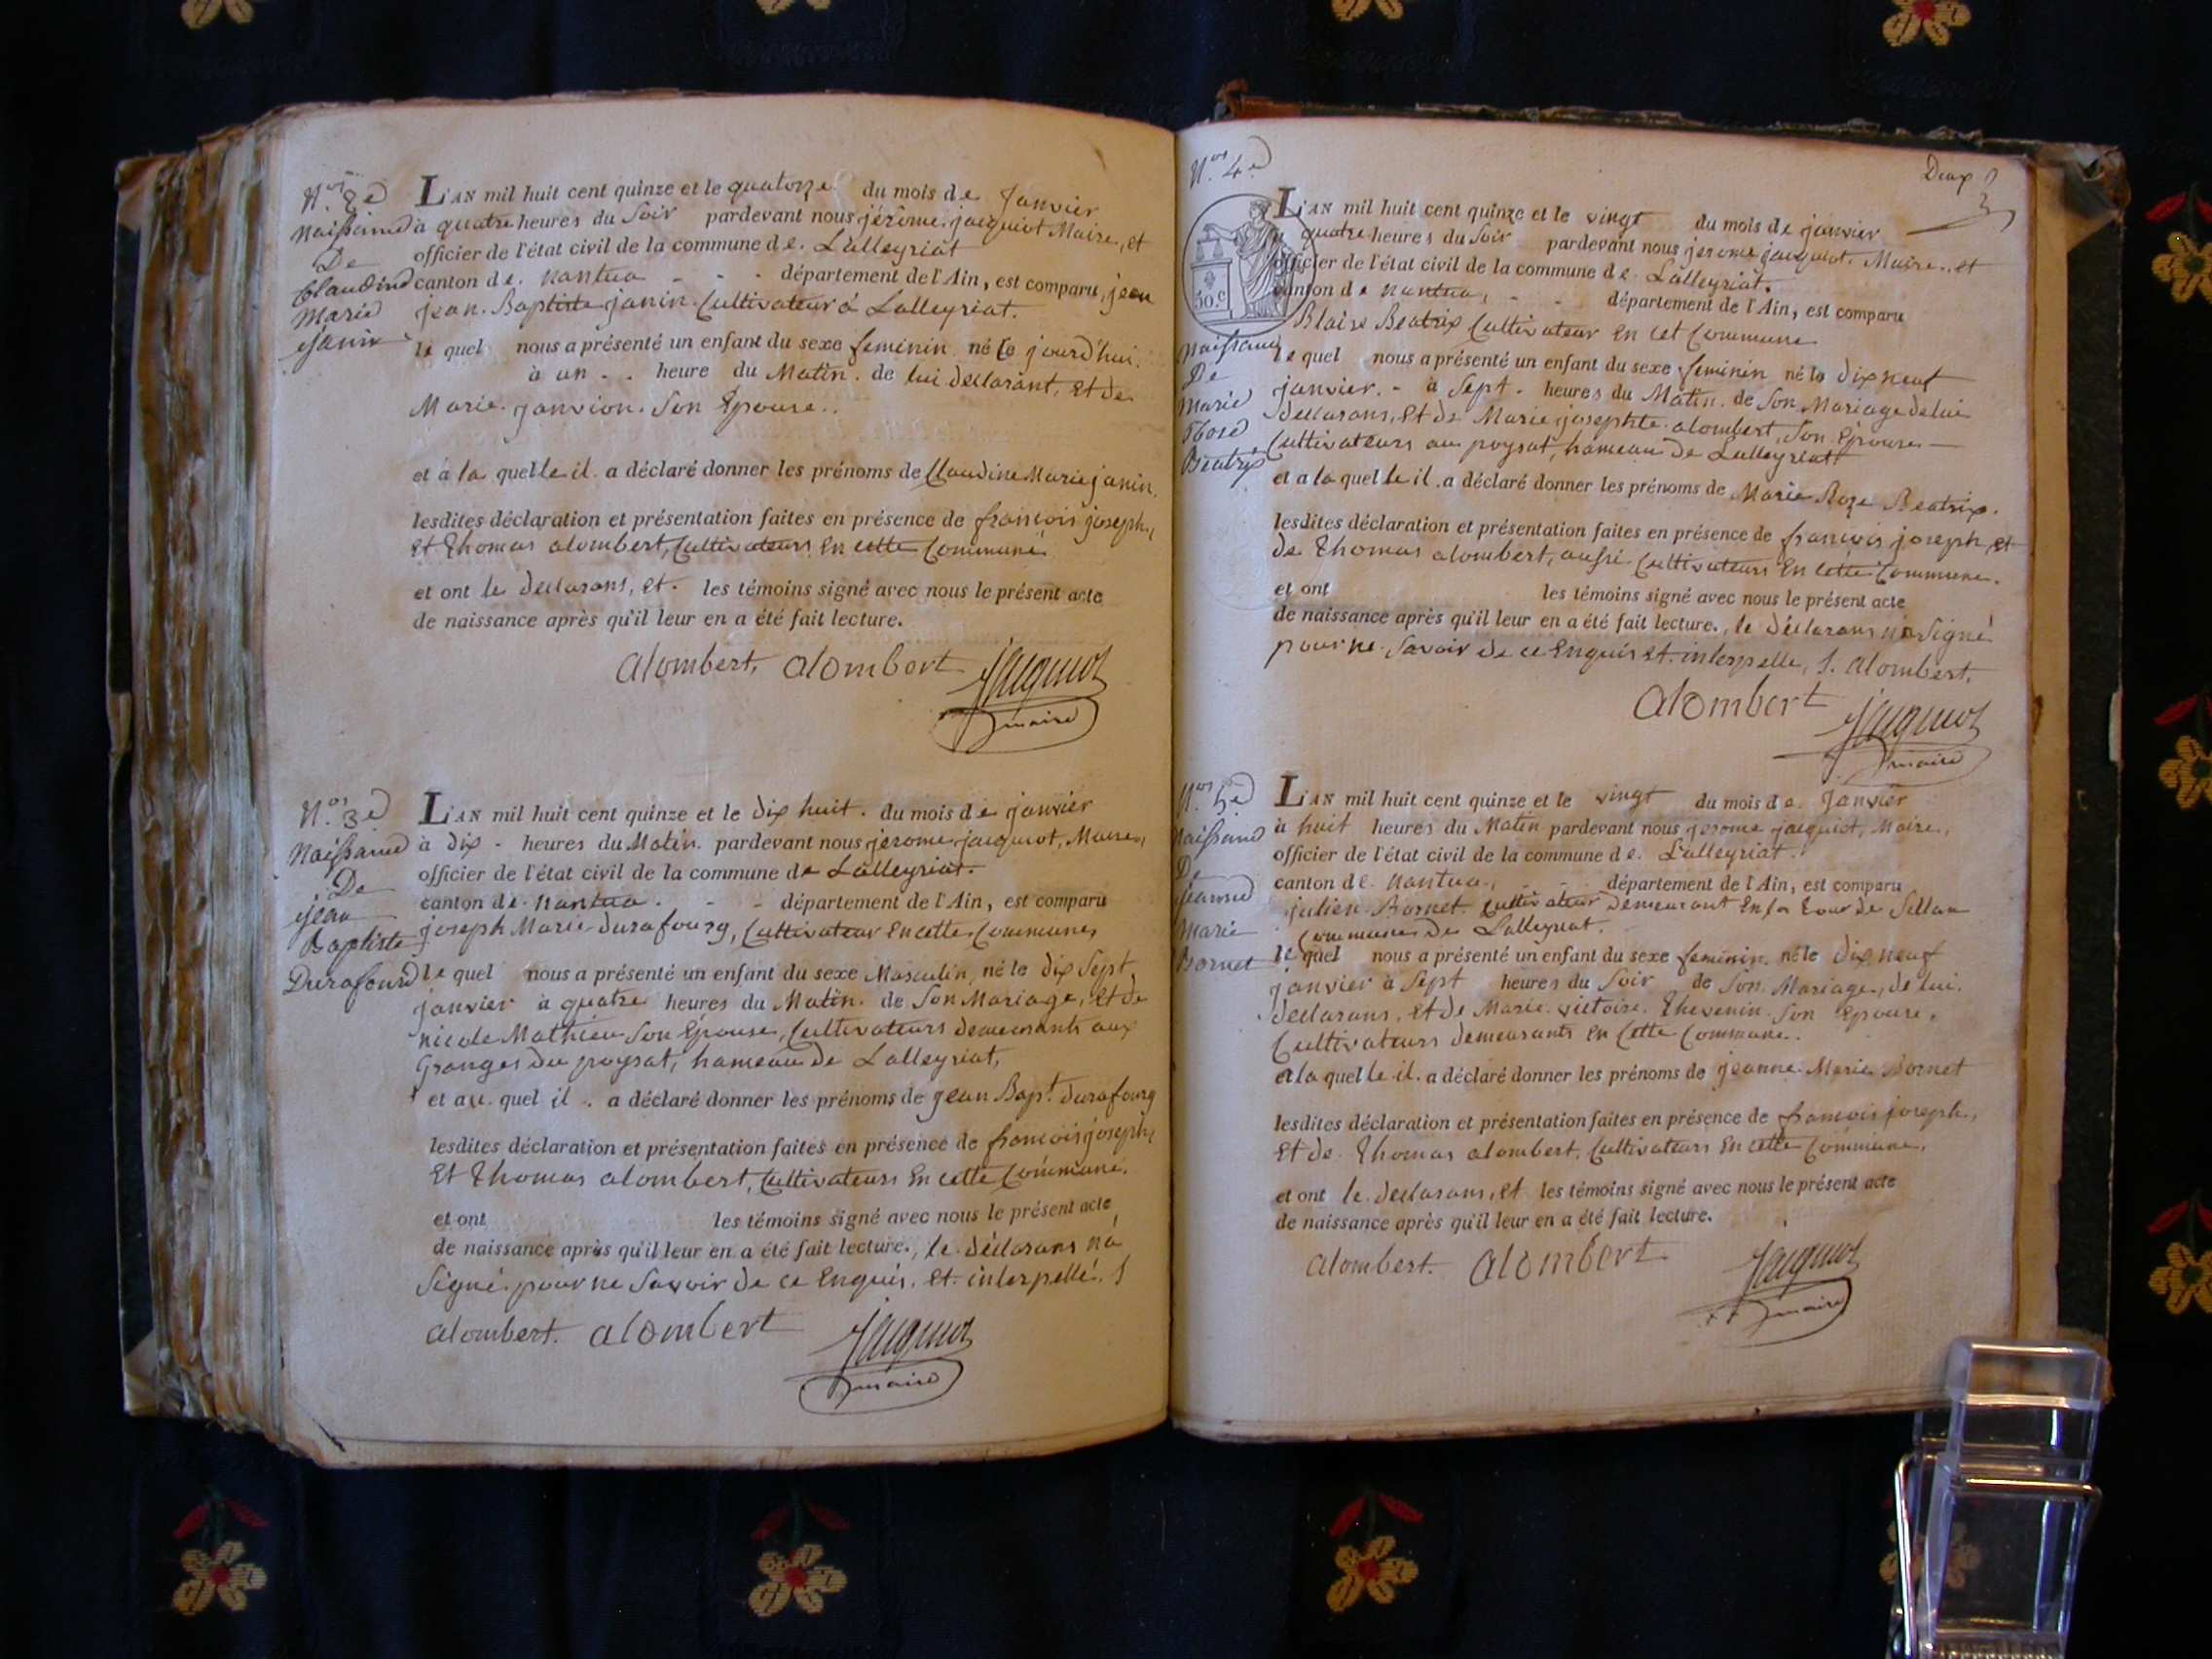 N.os 2e
Naissance
De
Claudine
Marie
Janin
L'AN mil huit cent quinze et le quatorze du mois de Janvier
à quatre heures du Soir pardevant nous jérôme jacquiot Maire, et
officier de l'état civil de la commune de Lalleyriat
canton de nantua - - - département de l'Ain, est comparu, jean
jean Baptiste janin Cultivateur à Lalleyriat.
le quel nous a présenté un enfant du sexe feminin né Ce jourd'hui
à un . . heure du Matin de lui declarant, et de
Marie janvion Son Epouse.
et à la quelle il a déclaré donner les prénoms de Claudine Marie janin
lesdites déclaration et présentation faites en présence de francois joseph,
et Thomas alombert, Cultivateurs En cette Commune
et ont le declarans, et les témoins signé avec nous le présent acte
de naissance après qu'il leur en a été fait lecture.
alombert, alombert Jacquiot
maire
N.os 3e
Naissance
De
jean
Baptiste
Durafourd
L'AN mil huit cent quinze et le dix huit . du mois de janvier
à dix - heures du Matin pardevant nous jerome jacquiot, Maire,
officier de l'état civil de la commune de Lalleyriat.
canton de nantua . - - département de l'Ain, est comparu
joseph Marie durafourg, Cultivateur En cette Commune,
le quel nous a présenté un enfant du sexe Masculin, né le dix Sept
janvier à quatre heures du Matin de Son Mariage, et de
nicole Mathieu Son Epouse, Cultivateurs demeurants aux
Granges du poysat, hameau de Lalleyriat,
et au quel il . a déclaré donner les prénoms de jean Bapt. durafourg
lesdites déclaration et présentation faites en présence de francois joseph,
et Thomas alombert, Cultivateurs En cette Commune.
et ont les témoins signé avec nous le présent acte
de naissance après qu'il leur en a été fait lecture, le déclarans na
Signé pour ne Savoir de ce Enquis, et interpellé. J
alombert. alombert Jacquiot
maire
Deux
N.os 4e
50.c
Naissance
De
Marie
Rose
Beatrix
L'AN mil huit cent quinze et le vingt du mois de janvier
à quatre heures du Soir pardevant nous jerome jacquiot, Maire, et
officier de l'état civil de la commune de Lalleyriat.
canton de nantua, - - département de l'Ain, est comparu
Blaise Beatrix Cultivateur En cet Commune
le quel nous a présenté un enfant du sexe feminin né le dix neuf
janvier. - à Sept - heures du Matin de Son Mariage de lui
declarans, et de Marie josephte alombert, Son Epouse
Cultivateurs au poysat, hameau de Lalleyriat
et a la quelle il . a déclaré donner les prénoms de Marie Roze Beatrix.
lesdites déclaration et présentation faites en présence de francois joseph, et
de Thomas alombert, aussi Cultivateurs En cette Commune.
et ont les témoins signé avec nous le présent acte
de naissance après qu'il leur en a été fait lecture, le déclarans na Signé
pour ne Savoir de ce Enquis et interpelle, J. alombert.
alombert Jacquiot
maire
N.os 5e
Naissance
De
Jeanne
Marie
Bornet
L'AN mil huit cent quinze et le vingt du mois de Janvier
à huit heures du Matin pardevant nous jerome jacquiot, Maire,
officier de l'état civil de la commune de Lalleyriat.
canton de nantua, - - département de l'Ain, est comparu
julien Bornet Cultivateur demeurant En la tour de
Commune de Lalleyriat.
le quel nous a présenté un enfant du sexe feminin né le dix neuf
janvier à Sept heures du Soir de Son Mariage, de lui
declarans, et de Marie victoire Thevenin Son Epouse,
Cultivateurs demeurants en Cette Commune.
et a la quelle il a déclaré donner les prénoms de jeanne Marie Bornet
lesdites déclaration et présentation faites en présence de francois joseph,
et de Thomas alombert, Cultivateurs En cette Commune,
et ont le declarans, et les témoins signé avec nous le présent acte
de naissance après qu'il leur en a été fait lecture.
alombert. alombert Jacquiot
maire